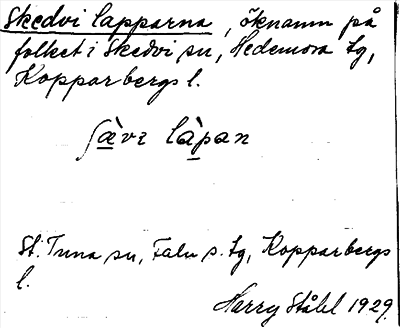 Skedvi lapparna, öknamn på
folket i Skedvi sn, Hedemora tg,
Kopparbergs l.
ʃæ̀vi làpan
St. Tuna sn, Falu s. tg, Kopparbergs
l.
Harry Ståhl 1929.